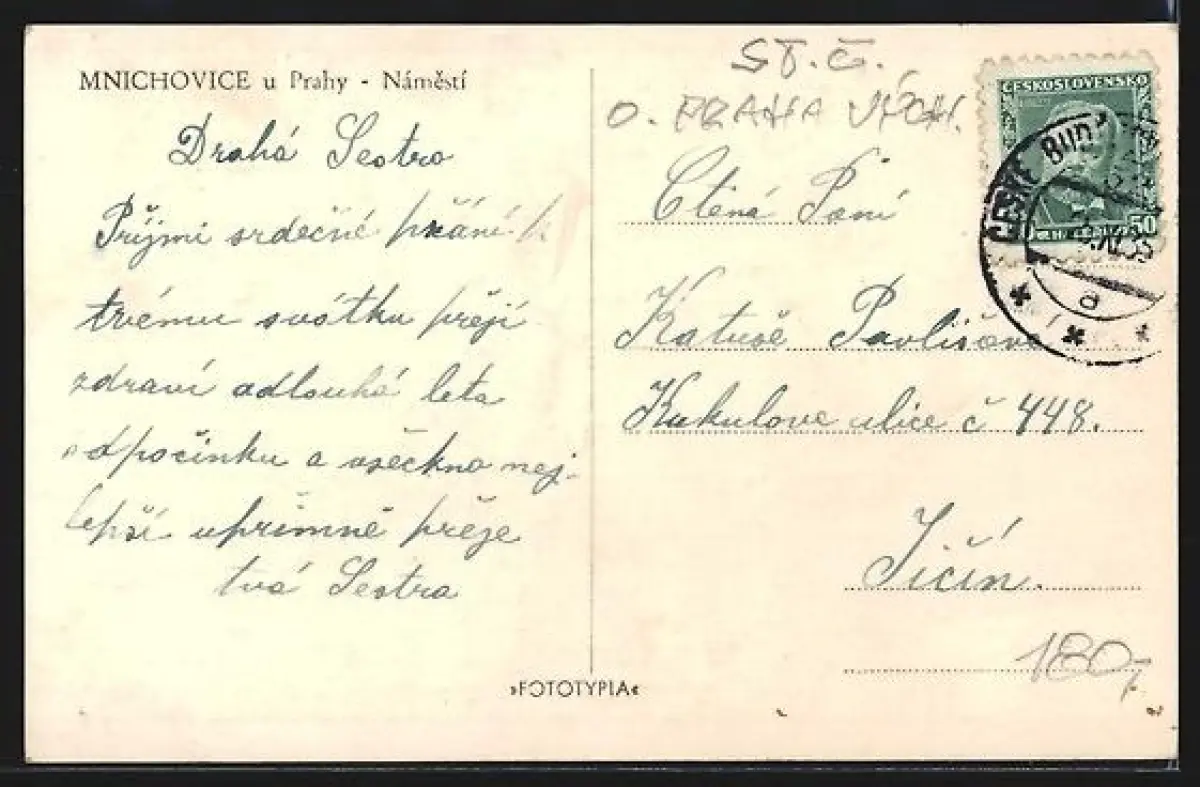 MNICHOVICE u Prahy - Náměstí
Drahá Sestro
Příjmi srdečné přání k
tvému svátku přejí
zdraví adlouhá leta
odpočinku a všeckno nej-
lepší upřímně přěje
tvá Sestra
»FOTOTYPIA«
ST. Č.
O. PRAHA VÝCH.
ČESKOSLOVENSKO
50
ČESKÉ BUD
Ctěná Paní
Katuše Pavlišova
Kukulove ulice č 448.
Jičín.
180,-